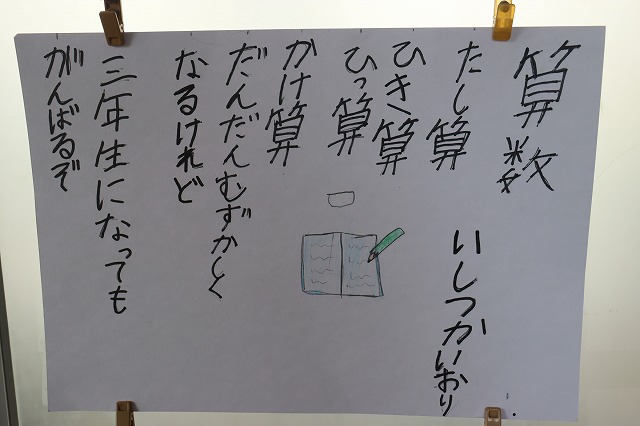 算数
いしづかいおり
たし算
ひき算
ひっ算
かけ算
だんだんむずかしく
なるけれど
三年生になっても
がんばるぞ